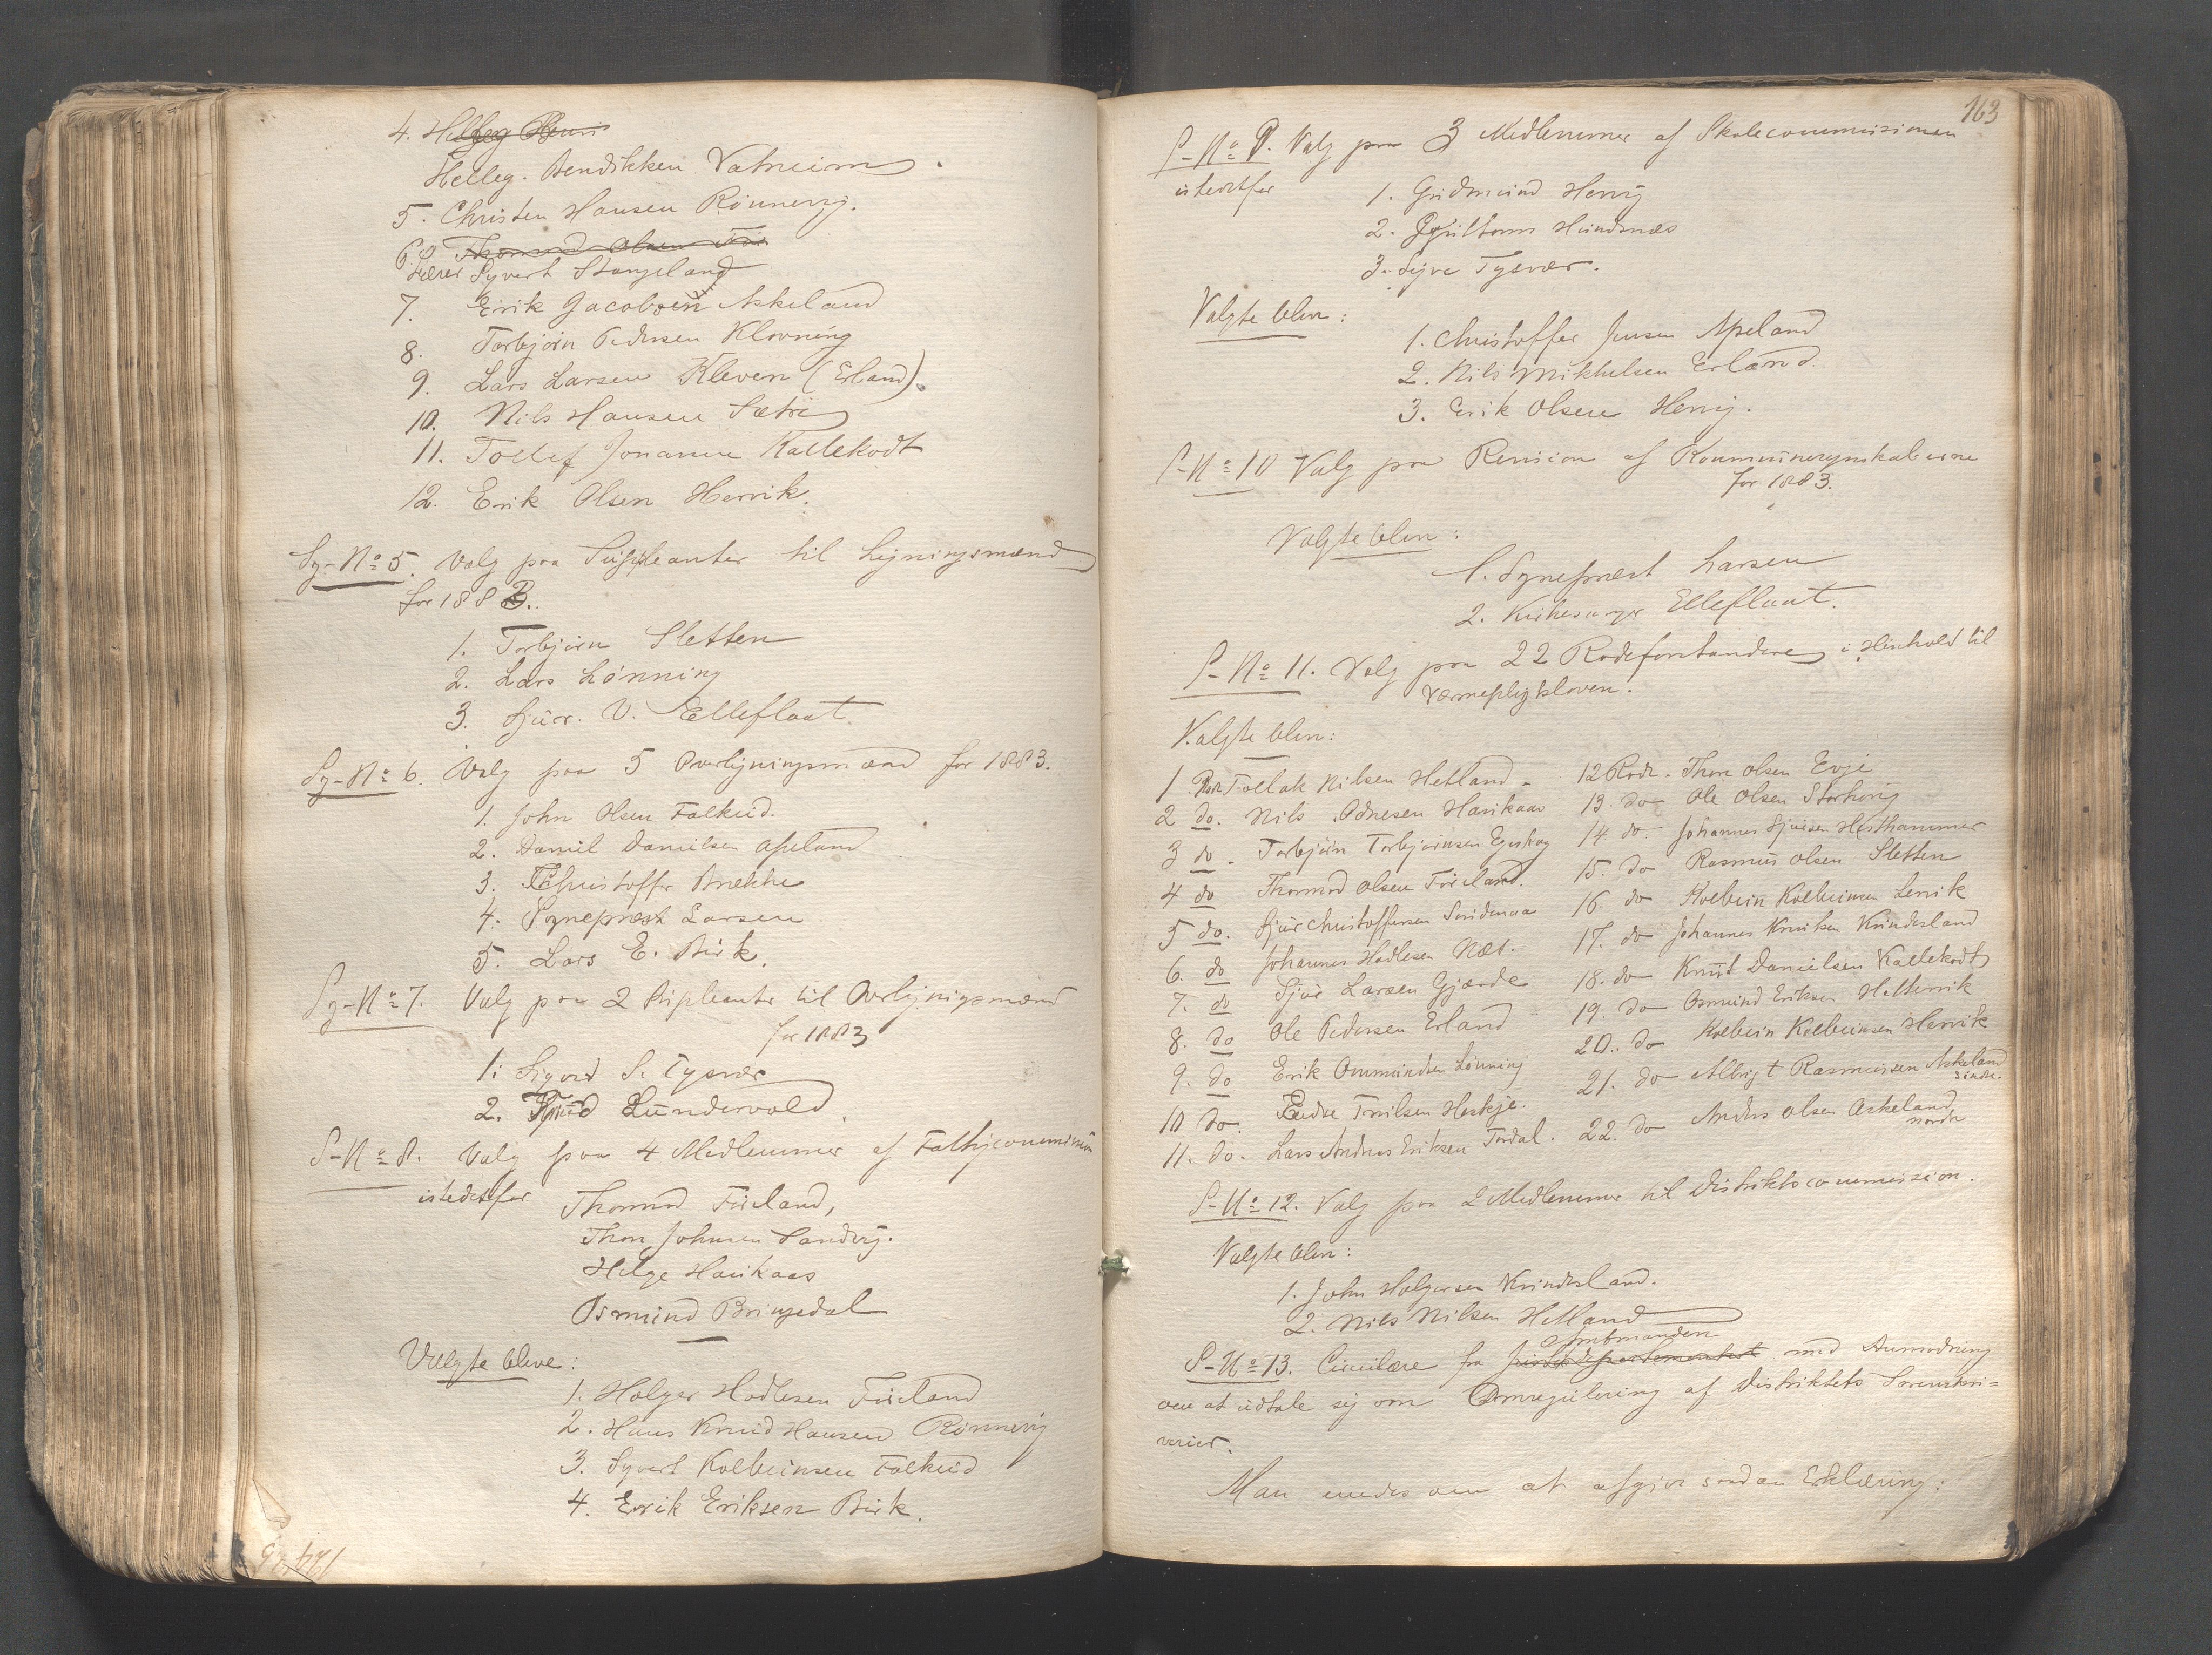 4. Helleg
Helleg. Bendikken Vatneim
5. Christen Hansen Rönnevig.
6. Thormod Olsen
Lærer Syvert Stangeland
7. Erik Jacobsen Askeland
8. Torbjörn Pedersen Klovning
9. Lars Larsen Kleven (Erland).
10. Nils Hansen Sætri
11. Tollef Jonanen Kallekodt
12. Erik Olsen Hervik.
Sg-No 5. Valg paa Suppleanter til Ligningsmænd
for 1883.
1. Torbjörn Sletten
2. Lars Lönning
3. Sjur. V. Elleflaat
Sg-No 6. Valg paa 5 Overligningsmænd for 1883.
1. John Olsen Falkeid.
2. Daniel Danielsen Apeland
3. Christoffer Brekke
4. Sogneprest Larsen
5. Lars E. Birk.
Sg-No 7. Valg paa 2 Supleanter til Overligningsmænd
for 1883
1. Sigurd S. Tysvær
2. Knud Lundervold.
S-No 8. Valg paa 4 Medlemmer af Fattigcommission
istedetfor Thormod Föreland,
Thor Johnsen Sandvig.
Helge Haukaas
Osmund Bringedal
Valgte bleve:
1. Holger Hodlesen Föreland
2. Hans Knud Hansen Rönnevig
3. Syvert Kolbeinsen Falkeid
4. Erik Eriksen Birk.
163
S-No 9. Valg paa 3 Medlemmer af Skolecommisionen
istedetfor 1. Gudmund Hervig
2. Hundsnæs
3. Syre Tysvær.
Valgte blev:
1. Christoffer Jensen Apeland
2. Nils Mikkelsen Erland.
3. Erik Olsen Hervig.
S-No 10 Valg paa Revision af Kommuneregnskaberne
for 1883.
Valgte blev:
1. Sogneprest Larsen
2. Kirkesanger Elleflaat.
S-No 11. Valg paa 22 Rodeforstandere i Henhold til
Værnepligtsloven.
Valgte blev:
1 Rode Tollak Nilsen Hetland
2 do. Nils Odnesen Haukaas
3 do. Torbjörn Torbjörnsen Egeskog
4 do Thormod Olsen Föreland.
5 do. Sjur Christoffersen
6. do Johannes Hodlesen Næs.
7. do Sjur Larsen Gjærde
8. do Ole Pedersen Erland
9. do Erik Ommundsen Lönning
10 do. Endre Troilsen Heskje.
11. do. Lars Andreas Eriksen Tordal.
12 Rode. Thor Olsen Evje
13. do Ole Olsen Storhoug
14 do. Johannes Sjursen Hesthammer
15. do Rasmus Olsen Sletten
16. do Kolbein Kolbeinsen Lervik
17. do Johannes Knutsen Kvindesland
18. do Knut Danielsen Kallekodt
19. do Osmund Eriksen Hettervik
20. do Kolbein Kolbeinsen Hervik
21. do Albrigt Rasmussen Askeland
söndre.
22. do Anders Olsen Askeland
nordre
S-No 12. Valg paa 2 Medlemmer til Distriktscommission.
Valgte blev:
1. John Holgersen Kvindesland.
2. Nils Nilsen Hetland
Amtmanden
S-No 13. Circulære fra Justitsdepartementet med Anmodning
om at udtale sig om Omregulering af Distriktets Sorenskri=
verier.
Man enedes om at afgive saadan Erklæring: